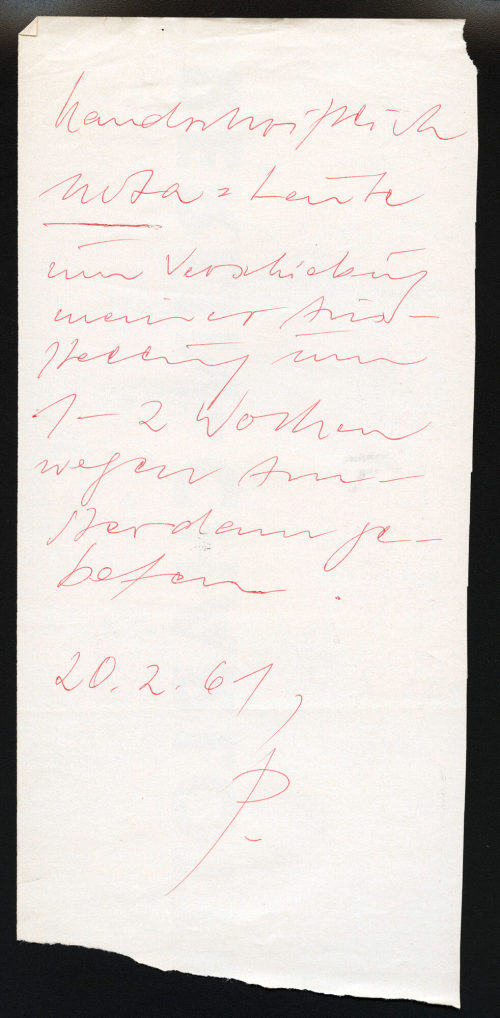 handschriftlich
nota = Leute
um Verschiebung
meiner Aus-
stellung um
1–2 Wochen
wegen Am-
sterdam ge-
beten.
20.2.61,
P.